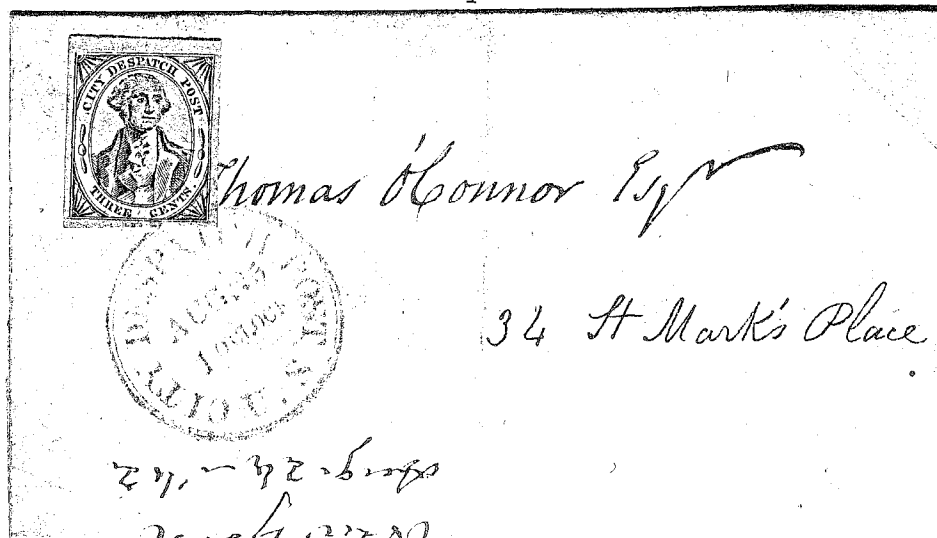 CITY DESPATCH POST
THREE CENTS.
Thomas O'Connor Esqr
34 St Mark's Place
U.S. CITY DESPATCH POST
AUG 25
1 O'CLOCK